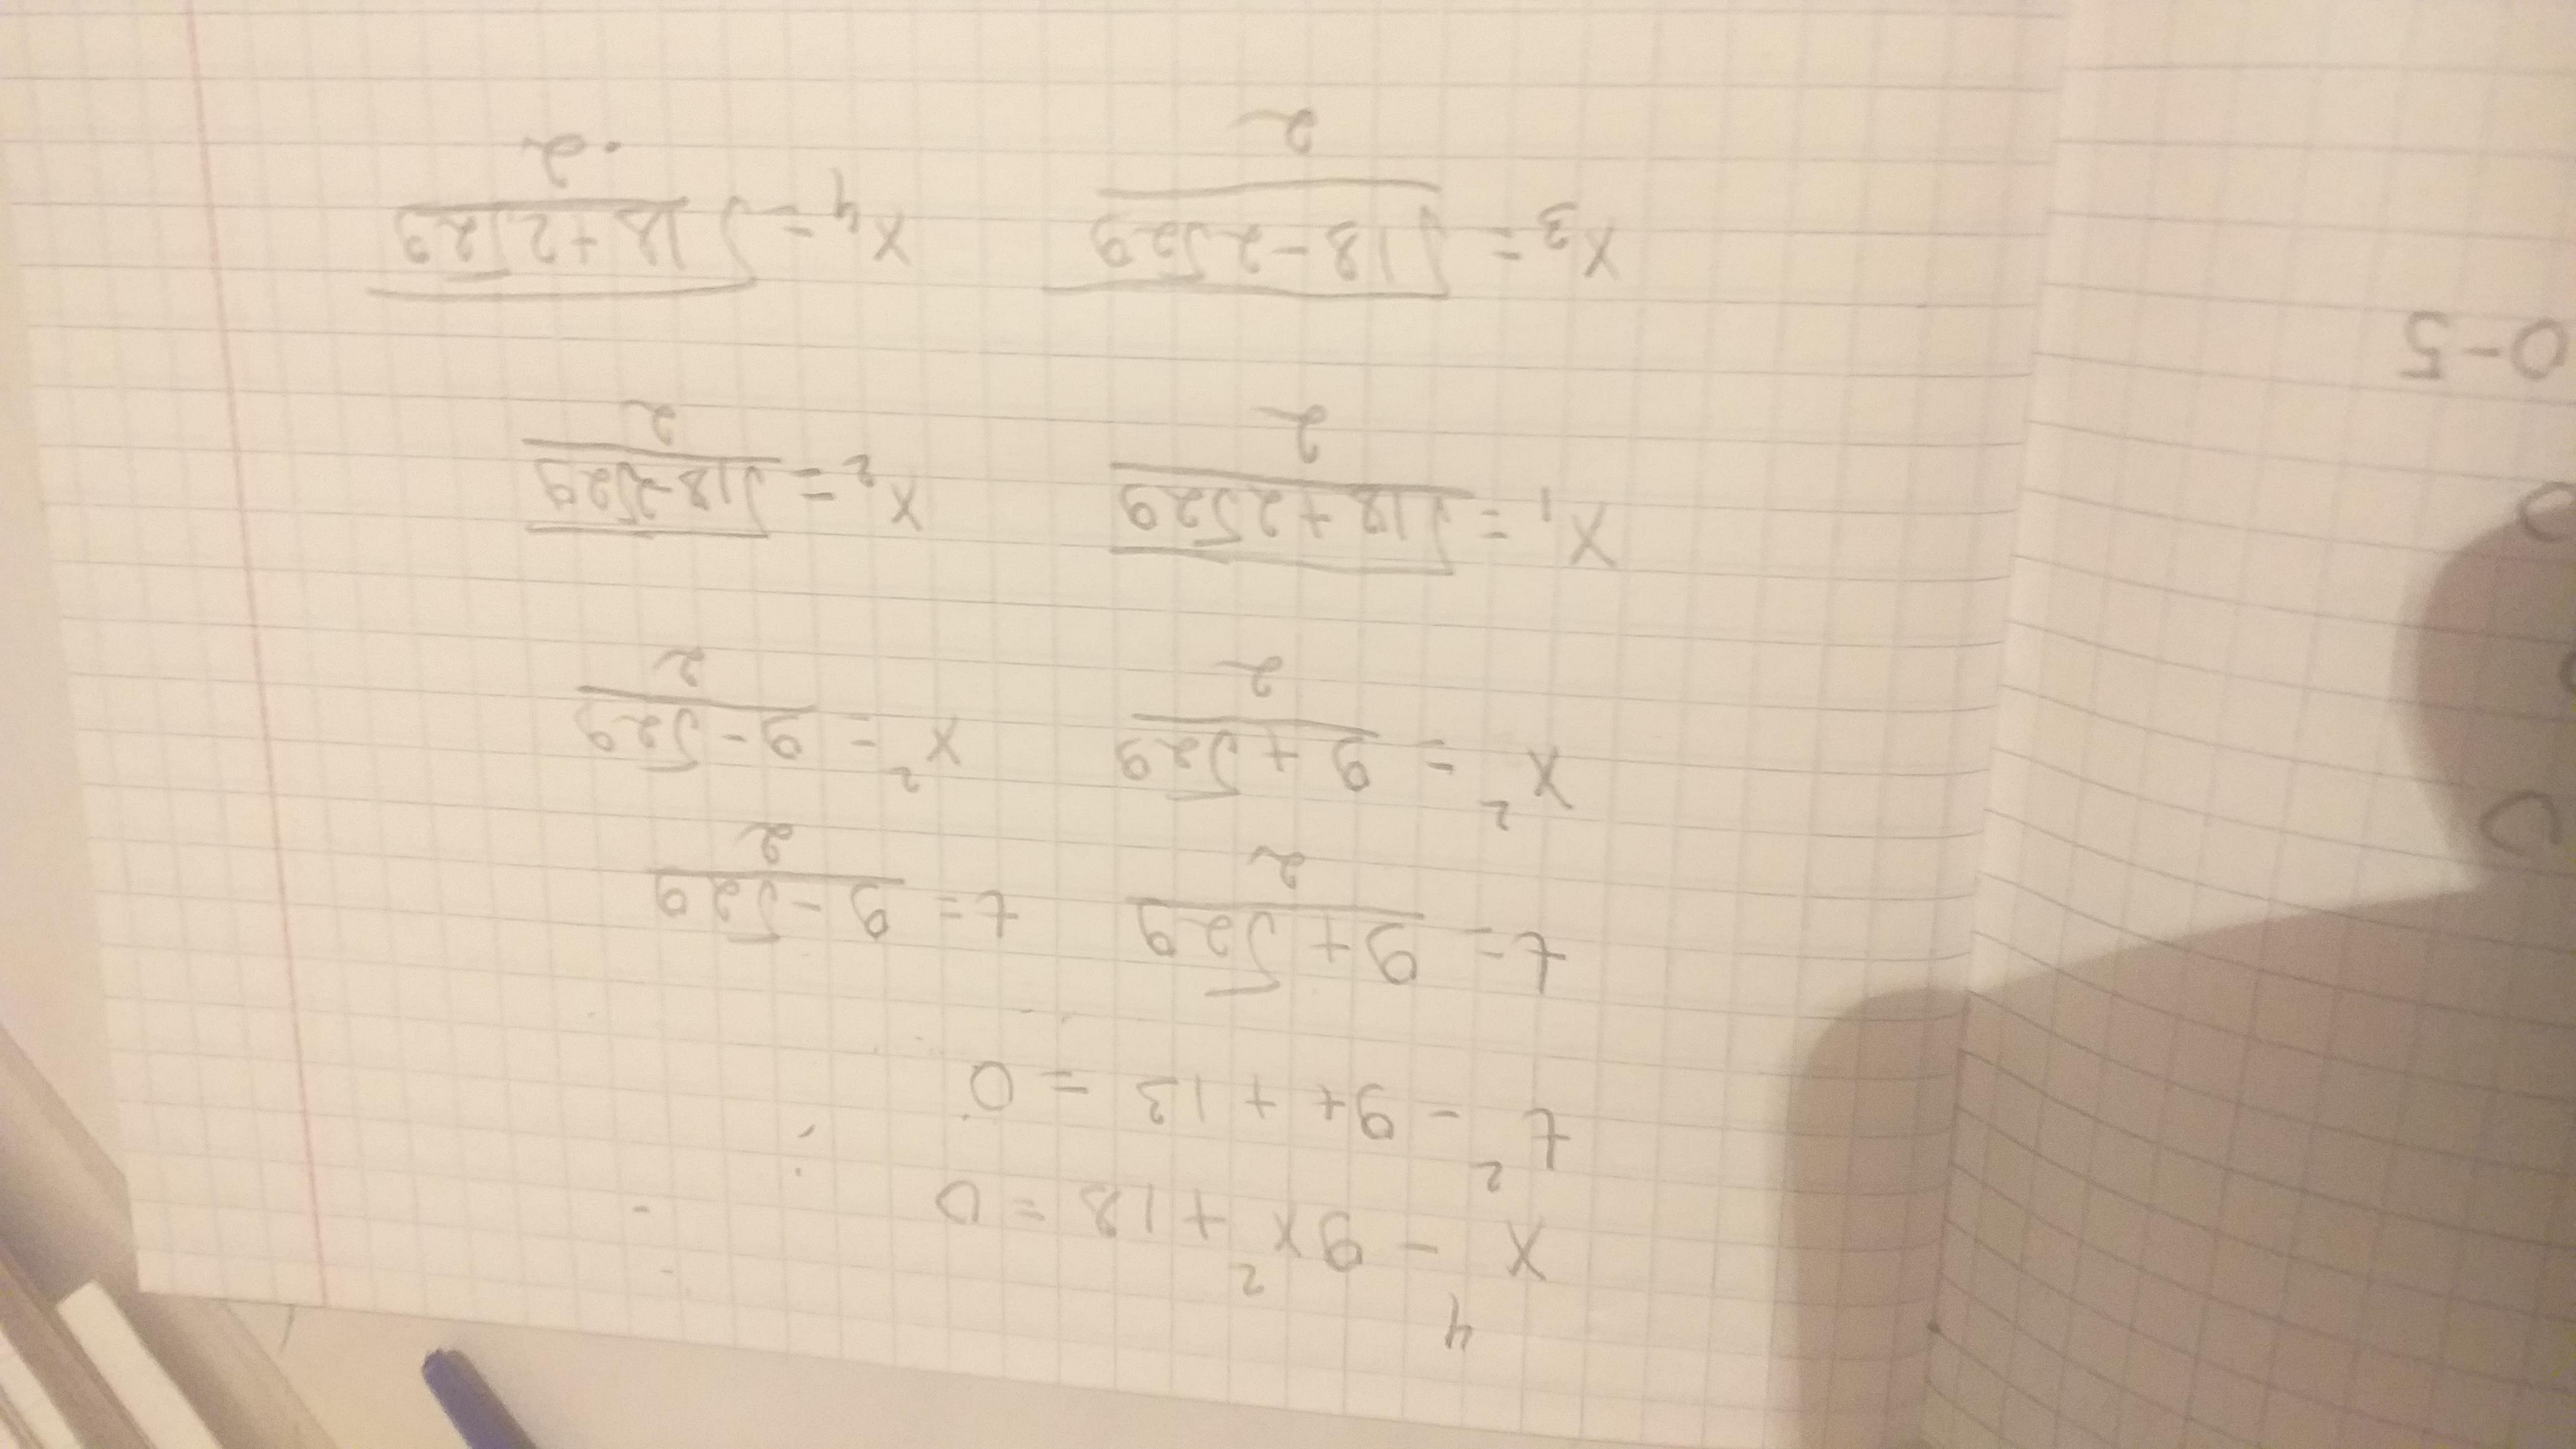 x⁴ - 9x² + 13 = 0
t² - 9t + 13 = 0
t = (9 + √29)/2 t = (9 - √29)/2
x² = (9 + √29)/2 x² = (9 - √29)/2
x₁ = √(18 + 2√29)/2 x₂ = √(18 - 2√29)/2
x₃ = √(18 - 2√29)/2 x₄ = √(18 + 2√29)/2
0-5